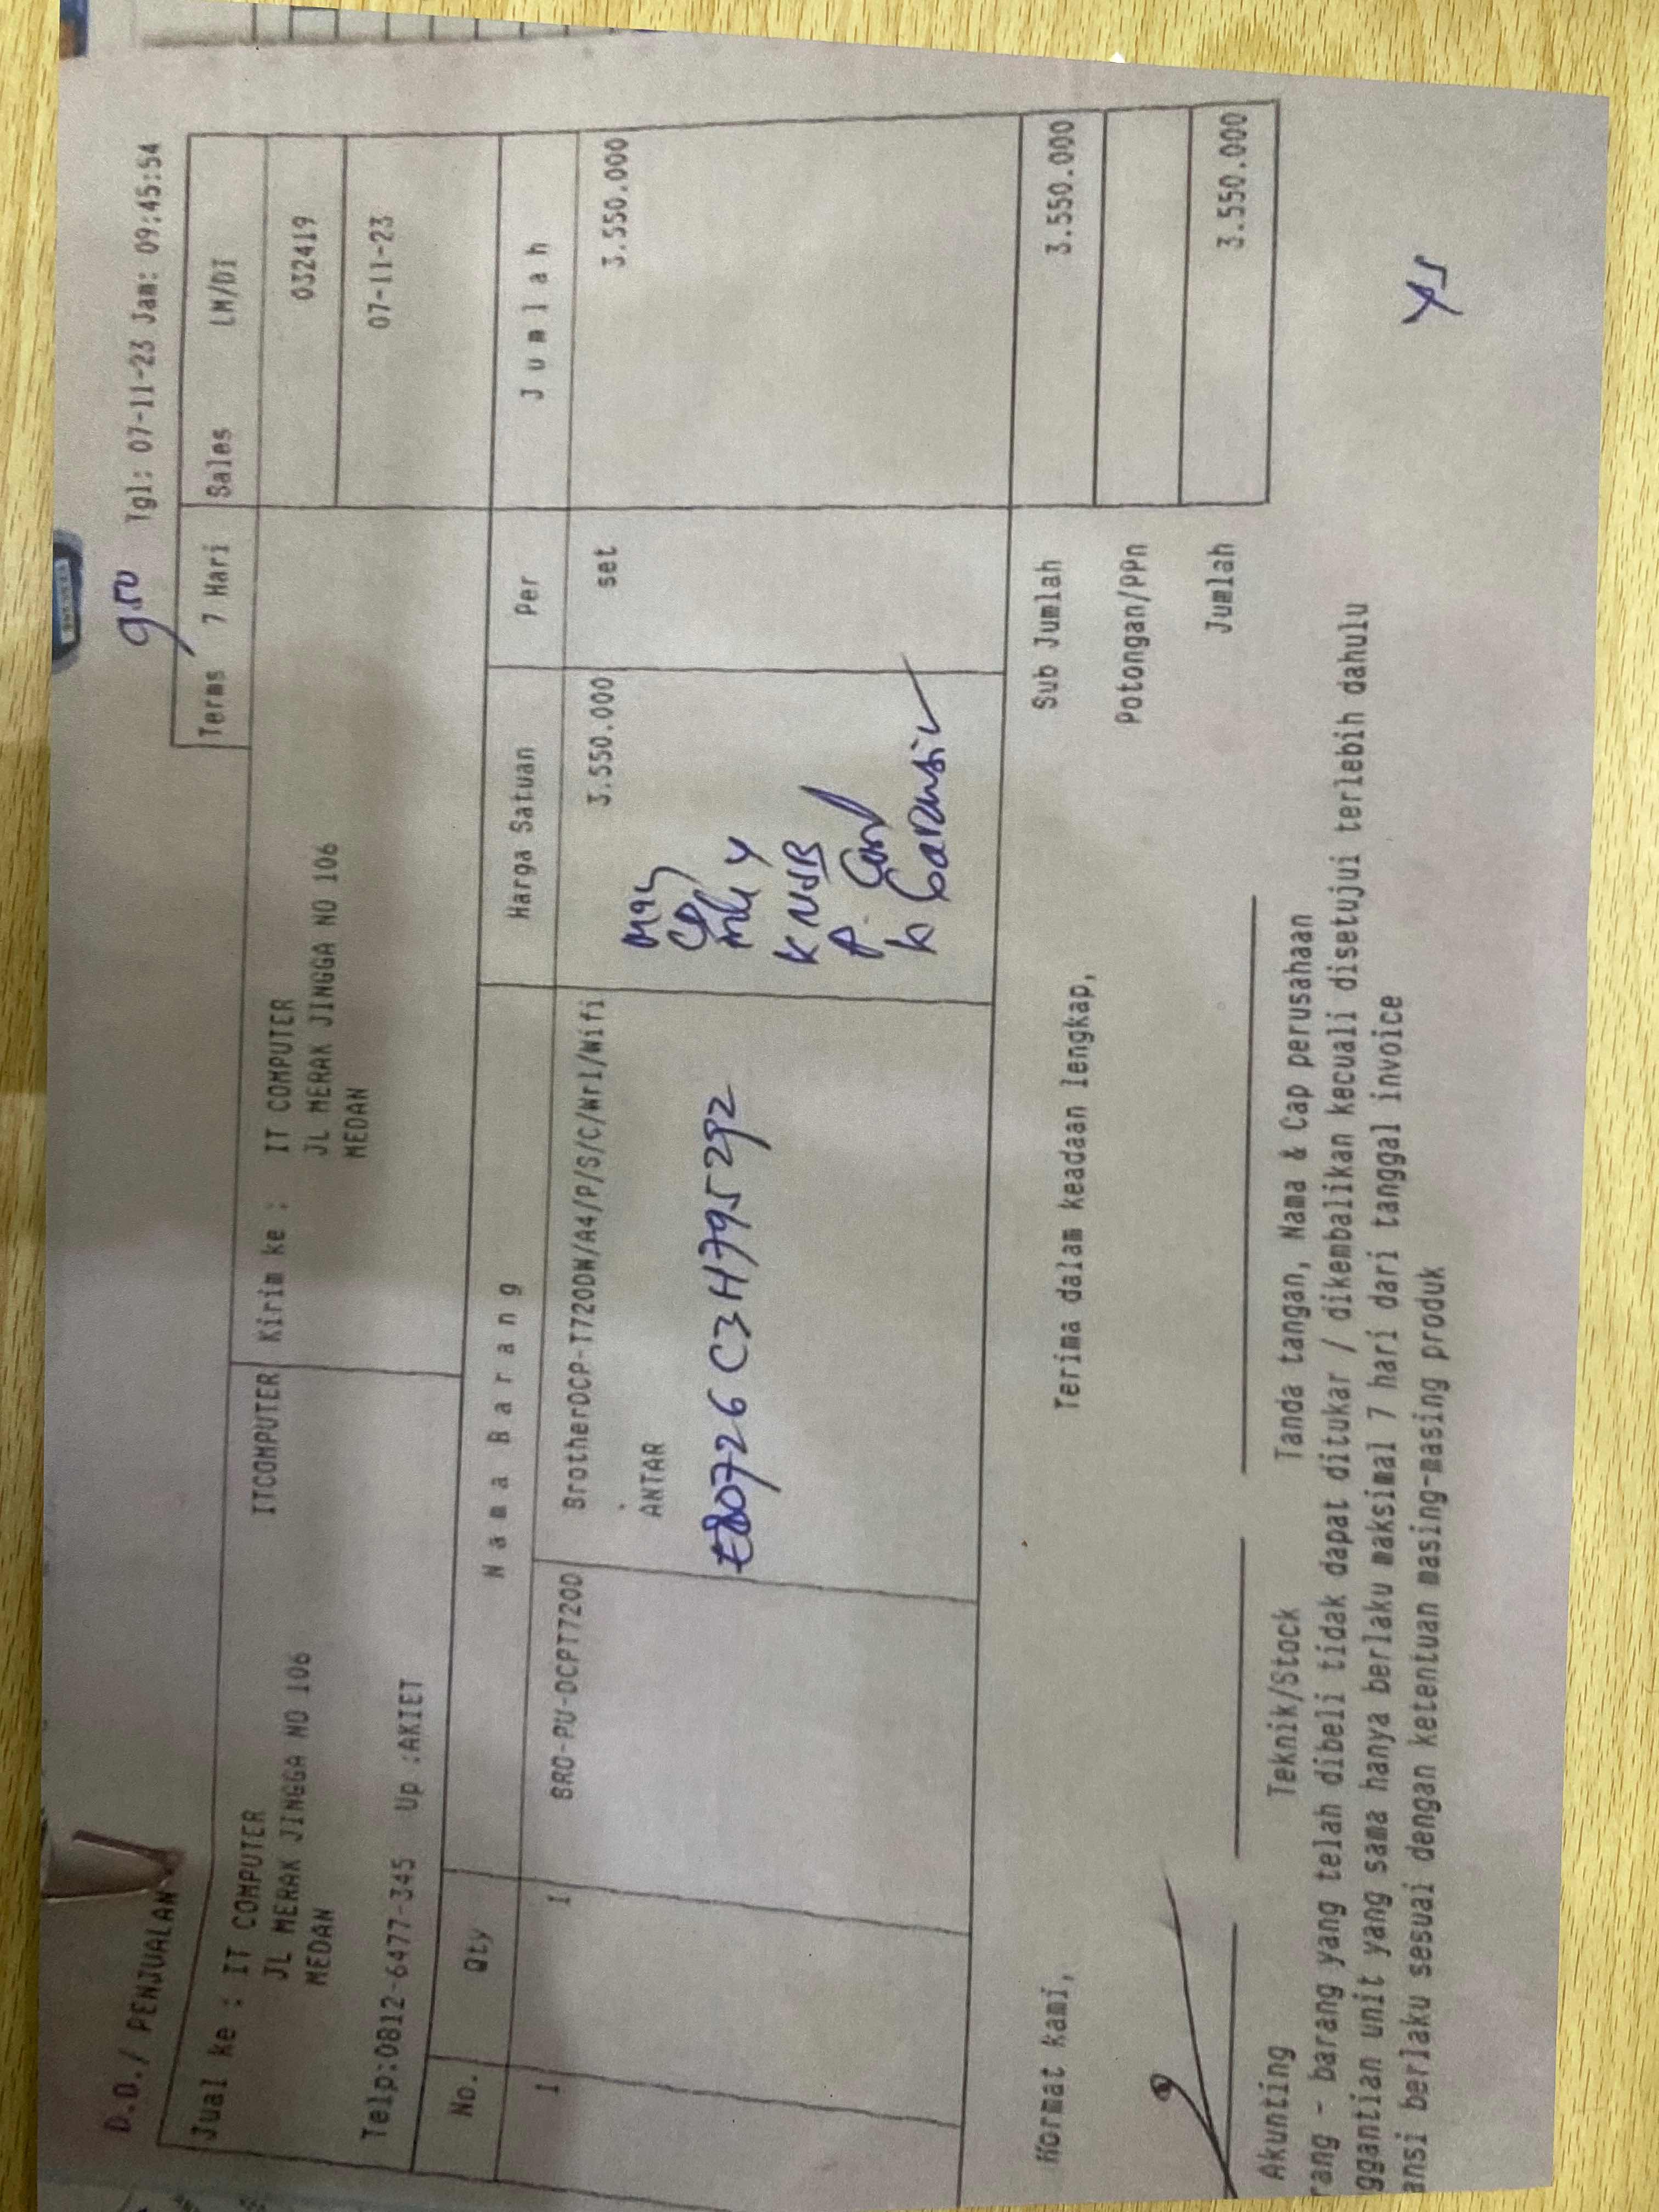 950 Tgl: 07-11-23 Jam: 09:45:54
D.O./ PENJUALAN
Terms 7 Hari Sales LM/DI
Jual ke : IT COMPUTER ITCOMPUTER Kirim ke : IT COMPUTER 032419
JL MERAK JINGGA NO 106 JL MERAK JINGGA NO 106
MEDAN MEDAN 07-11-23
Telp:0812-6477-345 Up :AKIET
No. Qty N a m a B a r a n g Harga Satuan Per J u m l a h
1 1 BRO-PU-DCPT720D BrotherDCP-T720DW/A4/P/S/C/Wrl/Wifi 3.550.000 set 3.550.000
ANTAR
E80726C3H795292
K USB
K Garansi
Sub Jumlah 3.550.000
Hormat kami, Terima dalam keadaan lengkap,
Potongan/PPn
Jumlah 3.550.000
Akunting Teknik/Stock Tanda tangan, Nama & Cap perusahaan
rang - barang yang telah dibeli tidak dapat ditukar / dikembalikan kecuali disetujui terlebih dahulu
ggantian unit yang sama hanya berlaku maksimal 7 hari dari tanggal invoice
ansi berlaku sesuai dengan ketentuan masing-masing produk